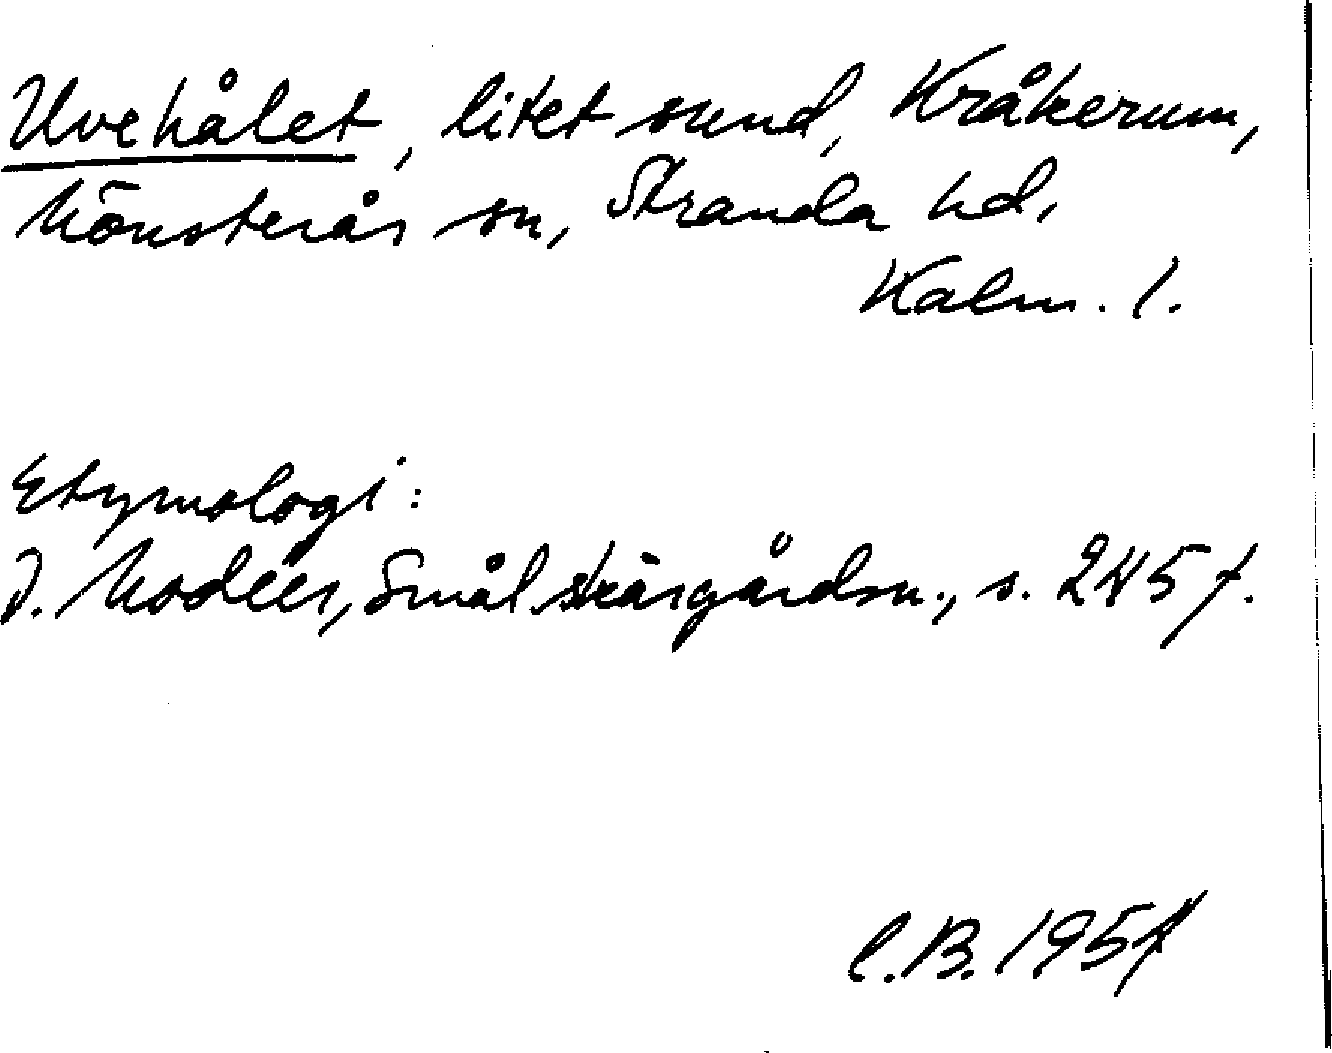 Uvehålet, litet sund, Kråkerum,
Mönsterås sn, Stranda hd,
Kalm. l.
Etymologi:
I. Modéer, Smål. skärgårdsn., s. 245 f.
C.B. 1957